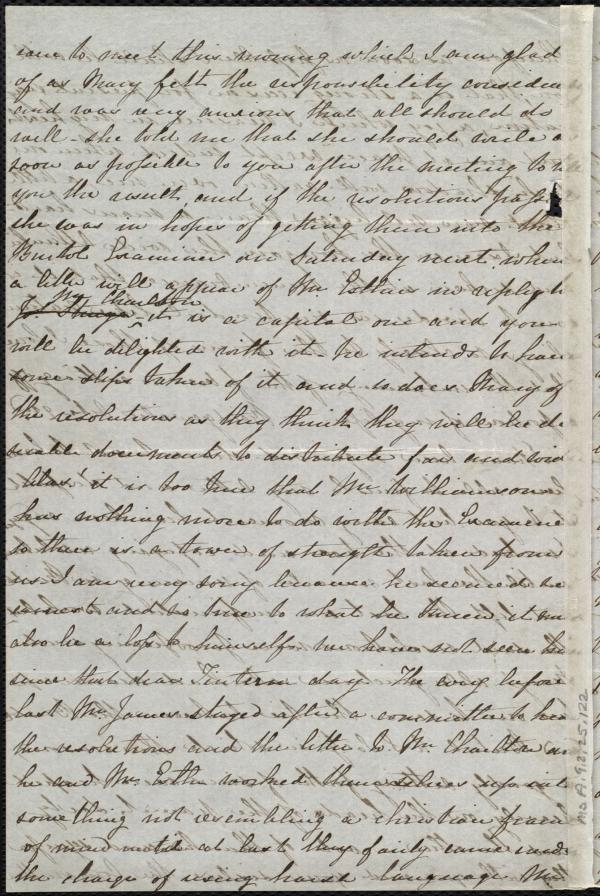 came to meet this morning which I am glad
of as Mary felt the responsibility
and was very anxious that all should do
well - she told me that she should write a
soon as possible to you after the meeting to
you the result, and if the resolutions pass
she was in hopes of getting them into the
Bristol Examiner on Saturday next when
a letter will appear of Mr Estlin in reply to
Mr Charlton
it is a capital one and you
will be delighted with it - he intends to have
some slips taken of it and so does Mary of
the resolutions as they think they will be
documents to distribute far and wide
Alas! it is too true that Mr Williamson
has nothing more to do with the Examiner
so there is a tower of strength taken from
us I am very sorry because he seemed so
earnest and so true to what he knew, it
also be a loss to himself, we have not seen him
since that dear Tintern day. The evg before
last Mr James stayed after a committee to hear
the resolutions and the letter to Mr Charlton
he and Mr Estlin worked themselves up into
something not resembling a christian frame
of mind until at last they fairly came under
the charge of using harsh language. Mr
Ms.A.9.2.25.122